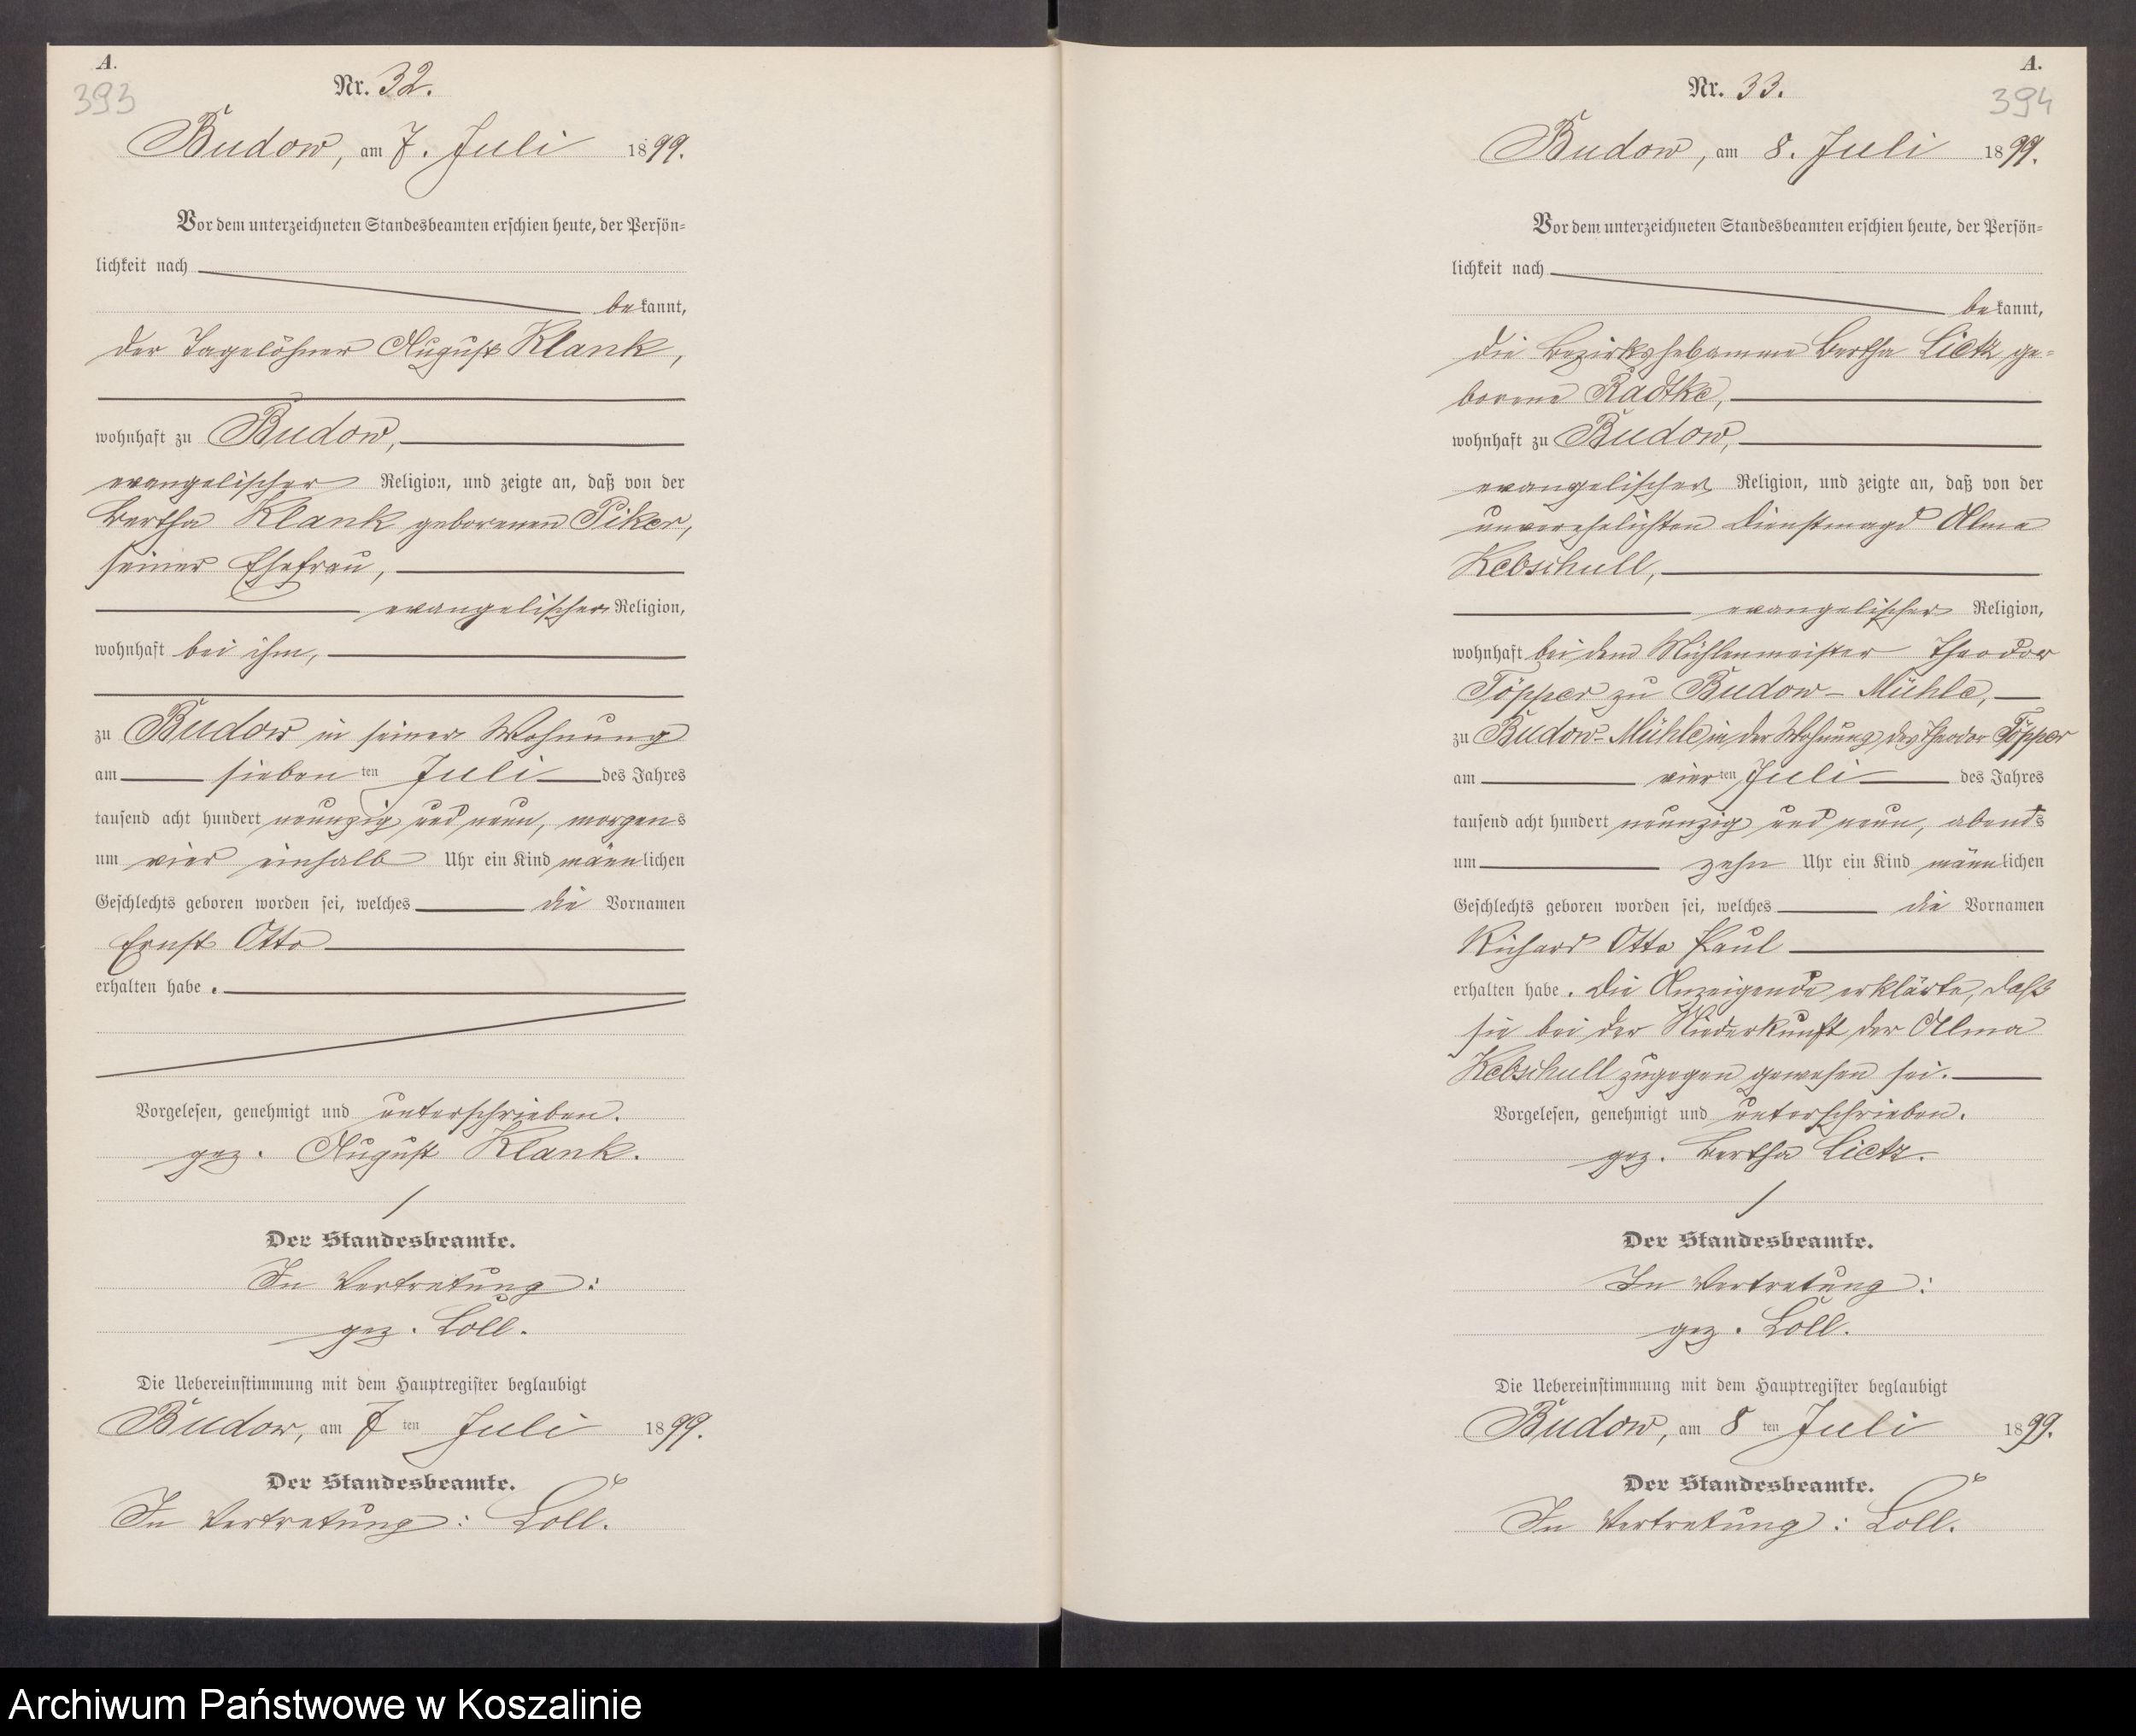 A.
393
Nr. 32.
Budow, am 7. Juli 1899.
Vor dem unterzeichneten Standesbeamten erschien heute, der Persön-
lichkeit nach
bekannt,
der Tagelöhner August Klank,
wohnhaft zu Budow,
evangelischer Religion, und zeigte an, daß von der
Bertha Klank geborenen Piker,
seiner Ehefrau,
evangelischer Religion,
wohnhaft bei ihm,
zu Budow in seiner Wohnung
am siebenten Juli des Jahres
tausend acht hundert neunzig und neun, morgens
um vier einhalb Uhr ein Kind männlichen
Geschlechts geboren worden sei, welches die Vornamen
Ernst Otto
erhalten habe.
Vorgelesen, genehmigt und unterschrieben.
gez. August Klank.
Der Standesbeamte.
In Vertretung:
gez. Loll.
Die Uebereinstimmung mit dem Hauptregister beglaubigt
Budow, am 7ten Juli 1899.
Der Standesbeamte.
In Vertretung: Loll.
A.
394
Nr. 33.
Budow, am 8. Juli 1899.
Vor dem unterzeichneten Standesbeamten erschien heute, der Persön-
lichkeit nach
bekannt,
die Bezirkshebamme Bertha Lietz ge-
borene Radtke,
wohnhaft zu Budow,
evangelischer Religion, und zeigte an, daß von der
unverehelichten Dienstmagd Alma
Kebschull,
evangelischer Religion,
wohnhaft bei dem Mühlenmeister Theodor
Töpper zu Budow-Mühle,
zu Budow-Mühle in der Wohnung des Theodor Töpper
am vierten Juli des Jahres
tausend acht hundert neunzig und neun, abends
um zehn Uhr ein Kind männlichen
Geschlechts geboren worden sei, welches die Vornamen
Richard Otto Paul
erhalten habe. Die Anzeigende erklärte, daß
sie bei der Niederkunft der Alma
Kebschull zugegen gewesen sei.
Vorgelesen, genehmigt und unterschrieben.
gez. Bertha Lietz.
Der Standesbeamte.
In Vertretung:
gez. Loll.
Die Uebereinstimmung mit dem Hauptregister beglaubigt
Budow, am 8ten Juli 1899.
Der Standesbeamte.
In Vertretung: Loll.
Archiwum Państwowe w Koszalinie